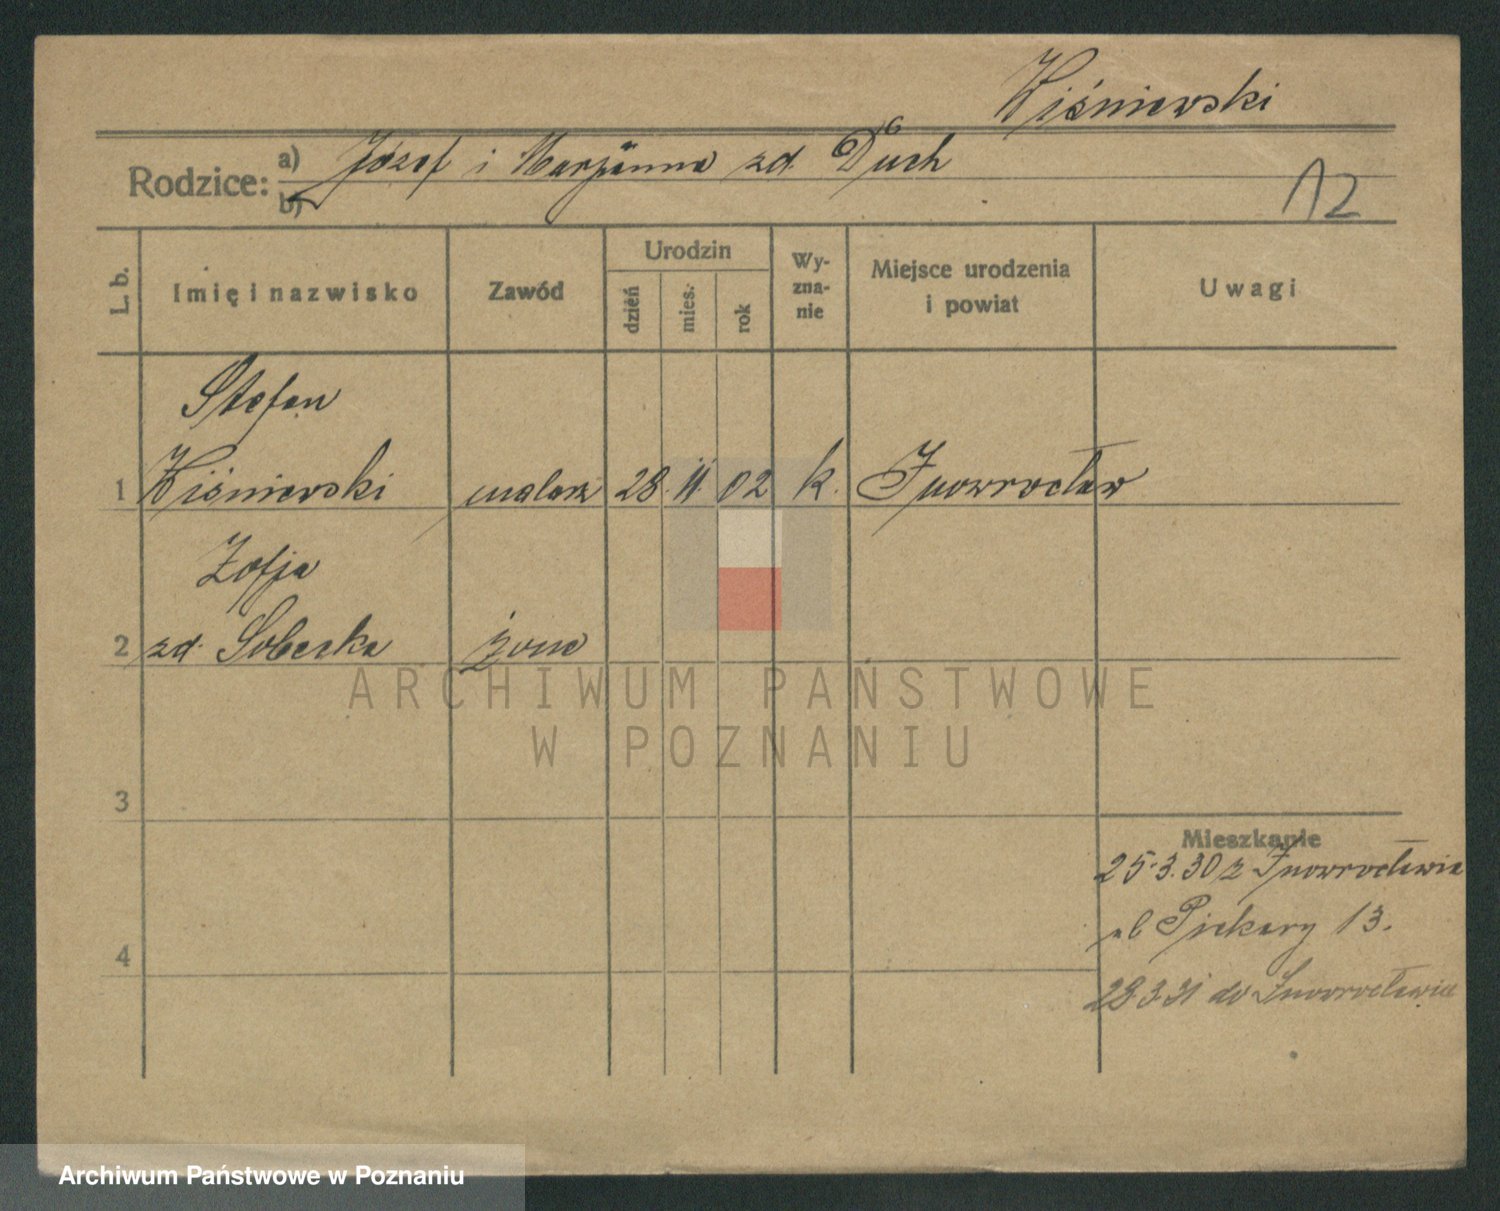 Wiśniewski
Rodzice: a) Józef i Marjanna zd. Duch
b)
12
L. b. Imię i nazwisko Zawód Urodzin dzień mies. rok Wyznanie Miejsce urodzenia i powiat Uwagi
Stefan
1 Wiśniewski malarz 28. 11. 02 k. Inowrocław
Zofja
2 zd. Sobecka żona
ARCHIWUM PAŃSTWOWE
W POZNANIU
3
Mieszkanie
25.3.30 z Inowrocławia
ul Piekary 13.
4
28.3.31 do Inowrocławia
Archiwum Państwowe w Poznaniu